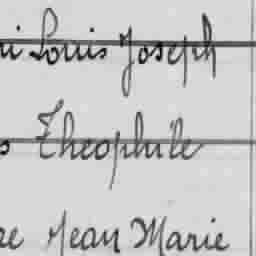 ri Louis Joseph
s Théophile
re Jean Marie